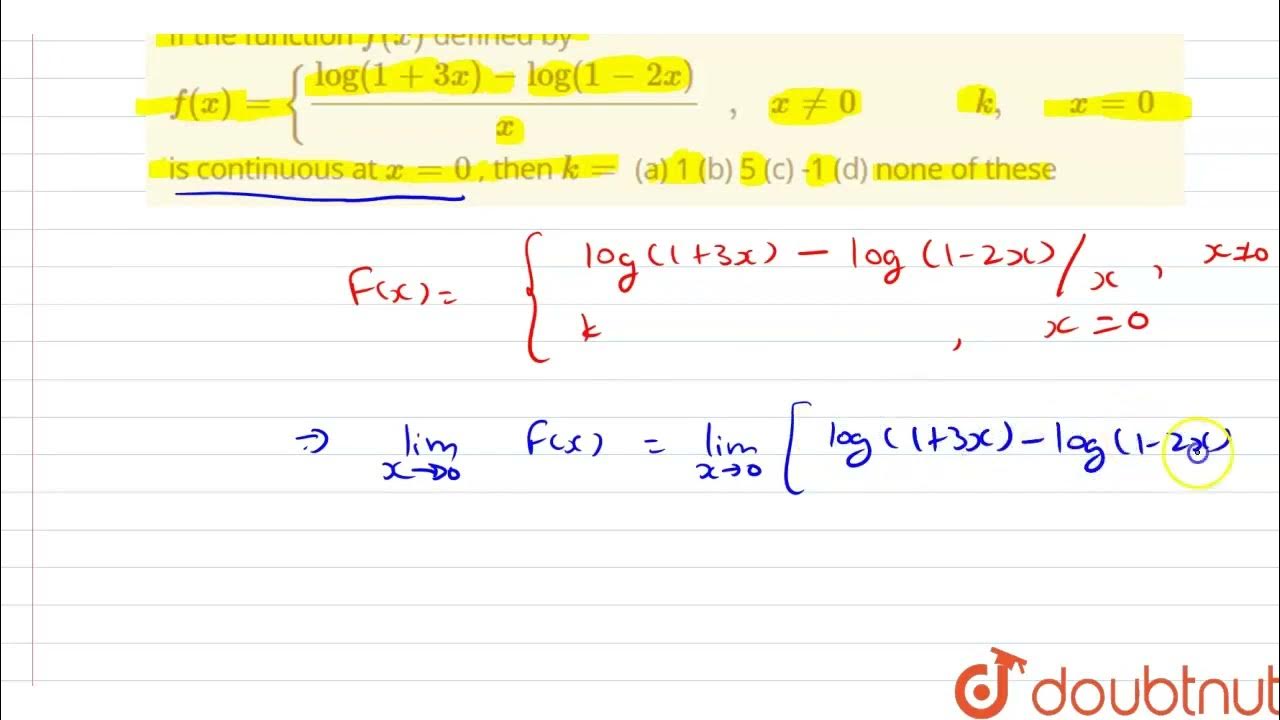 If the function f(x) defined by
f(x) = { log(1 + 3x) − log(1 − 2x) / x , x ≠ 0 k, x = 0
is continuous at x = 0 , then k = (a) 1 (b) 5 (c) -1 (d) none of these
F(x) = { log(1+3x) − log(1-2x)/x , x≠0
k , x = 0
⇒ lim x→0 F(x) = lim x→0 [ log(1+3x) − log(1-2x)
doubtnut